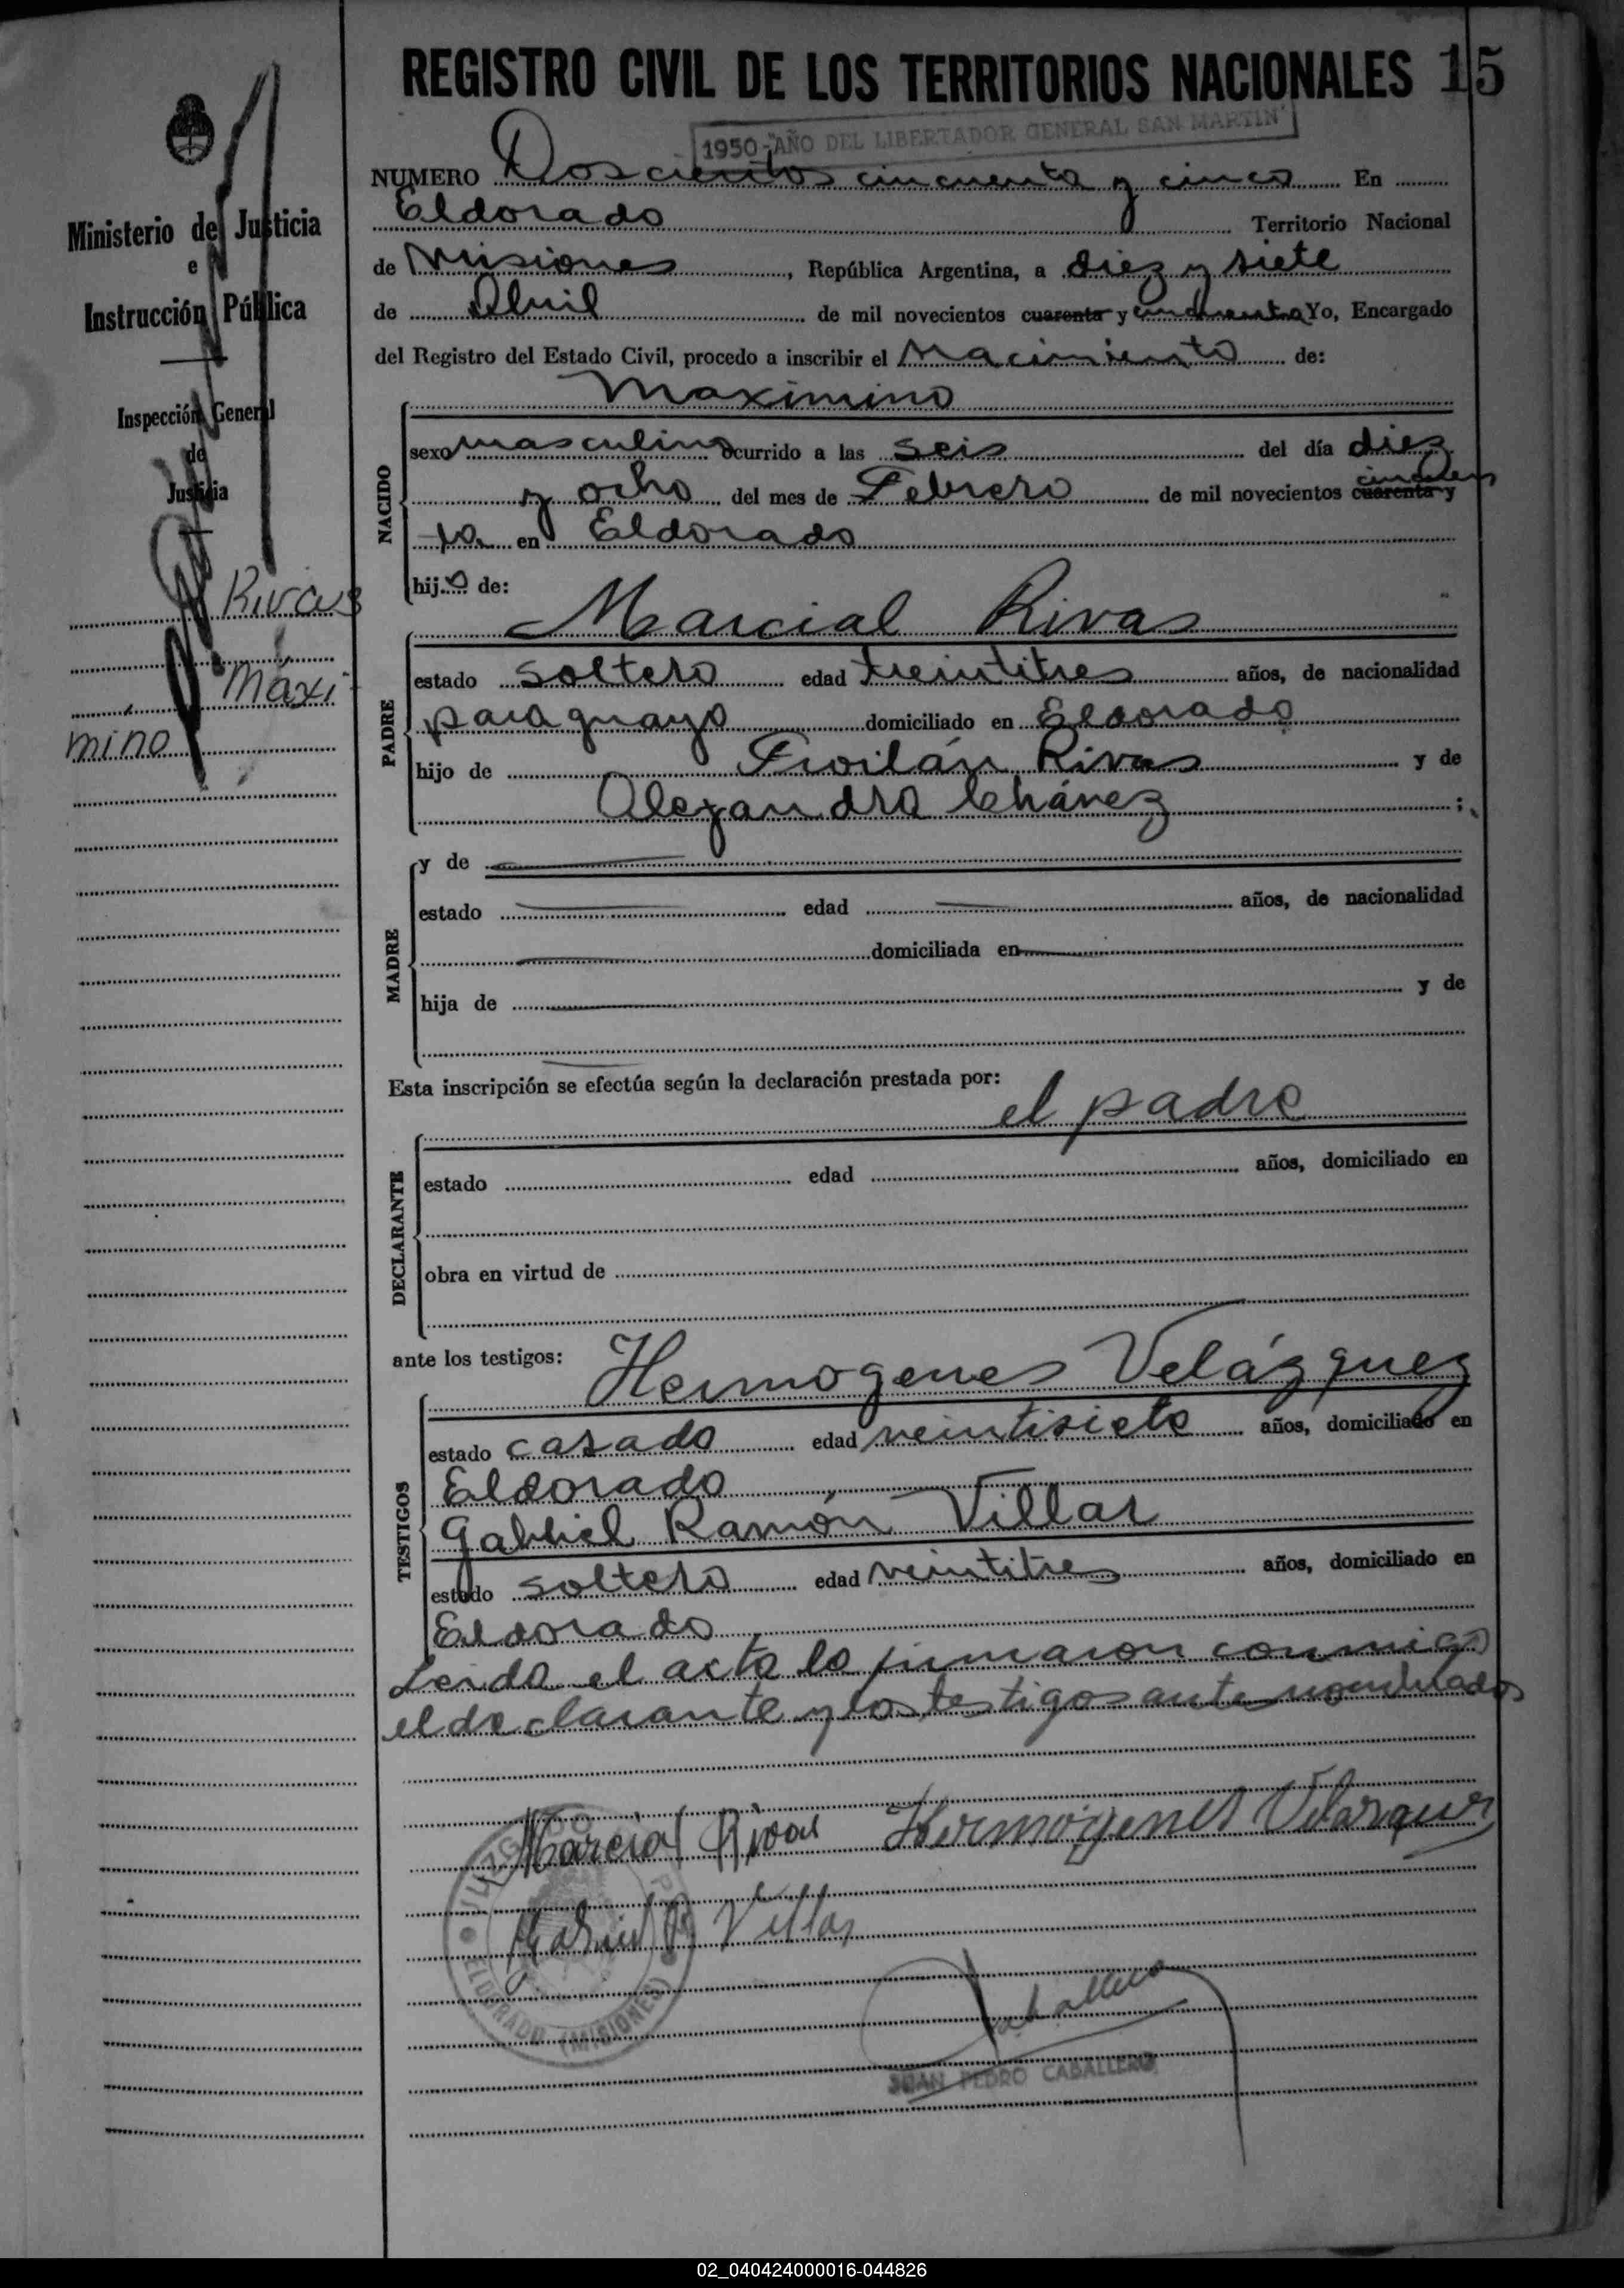 REGISTRO CIVIL DE LOS TERRITORIOS NACIONALES 15
1950-"AÑO DEL LIBERTADOR GENERAL SAN MARTIN"
NUMERO Doscientos cincuenta y cinco En
Eldorado Territorio Nacional
de Misiones, República Argentina, a diez y siete
de Abril de mil novecientos cuarenta y cincuenta Yo, Encargado
del Registro del Estado Civil, procedo a inscribir el Nacimiento de:
Ministerio de Justicia
e
Instrucción Pública
Inspección General
de
Justicia
Rivas
Máxi
mino
NACIDO
Maximino
sexo masculino ocurrido a las seis del día diez
y ocho del mes de Febrero de mil novecientos cuarenta y cincuen
ta en Eldorado
hijo de:
PADRE
Marcial Rivas
estado soltero edad treintitres años, de nacionalidad
paraguayo domiciliado en Eldorado
hijo de Froilán Rivas y de
Alejandra Chávez ;
MADRE
y de
estado edad años, de nacionalidad
domiciliada en
hija de y de
Esta inscripción se efectúa según la declaración prestada por:
el padre
DECLARANTE
estado edad años, domiciliado en
obra en virtud de
ante los testigos:
TESTIGOS
Hermogenes Velázquez
estado casado edad veintisiete años, domiciliado en
Eldorado
Gabriel Ramón Villar
estado soltero edad veintitres años, domiciliado en
Eldorado
Leida el acta la firmaron conmigo
el declarante y los testigos antes nombrados
Marcial Rivas Hermógenes Velazquez
Gabriel R Villar
JUZGADO DE PAZ
ELDORADO (MISIONES)
Caballero
JUAN PEDRO CABALLERO
02_040424000016-044826